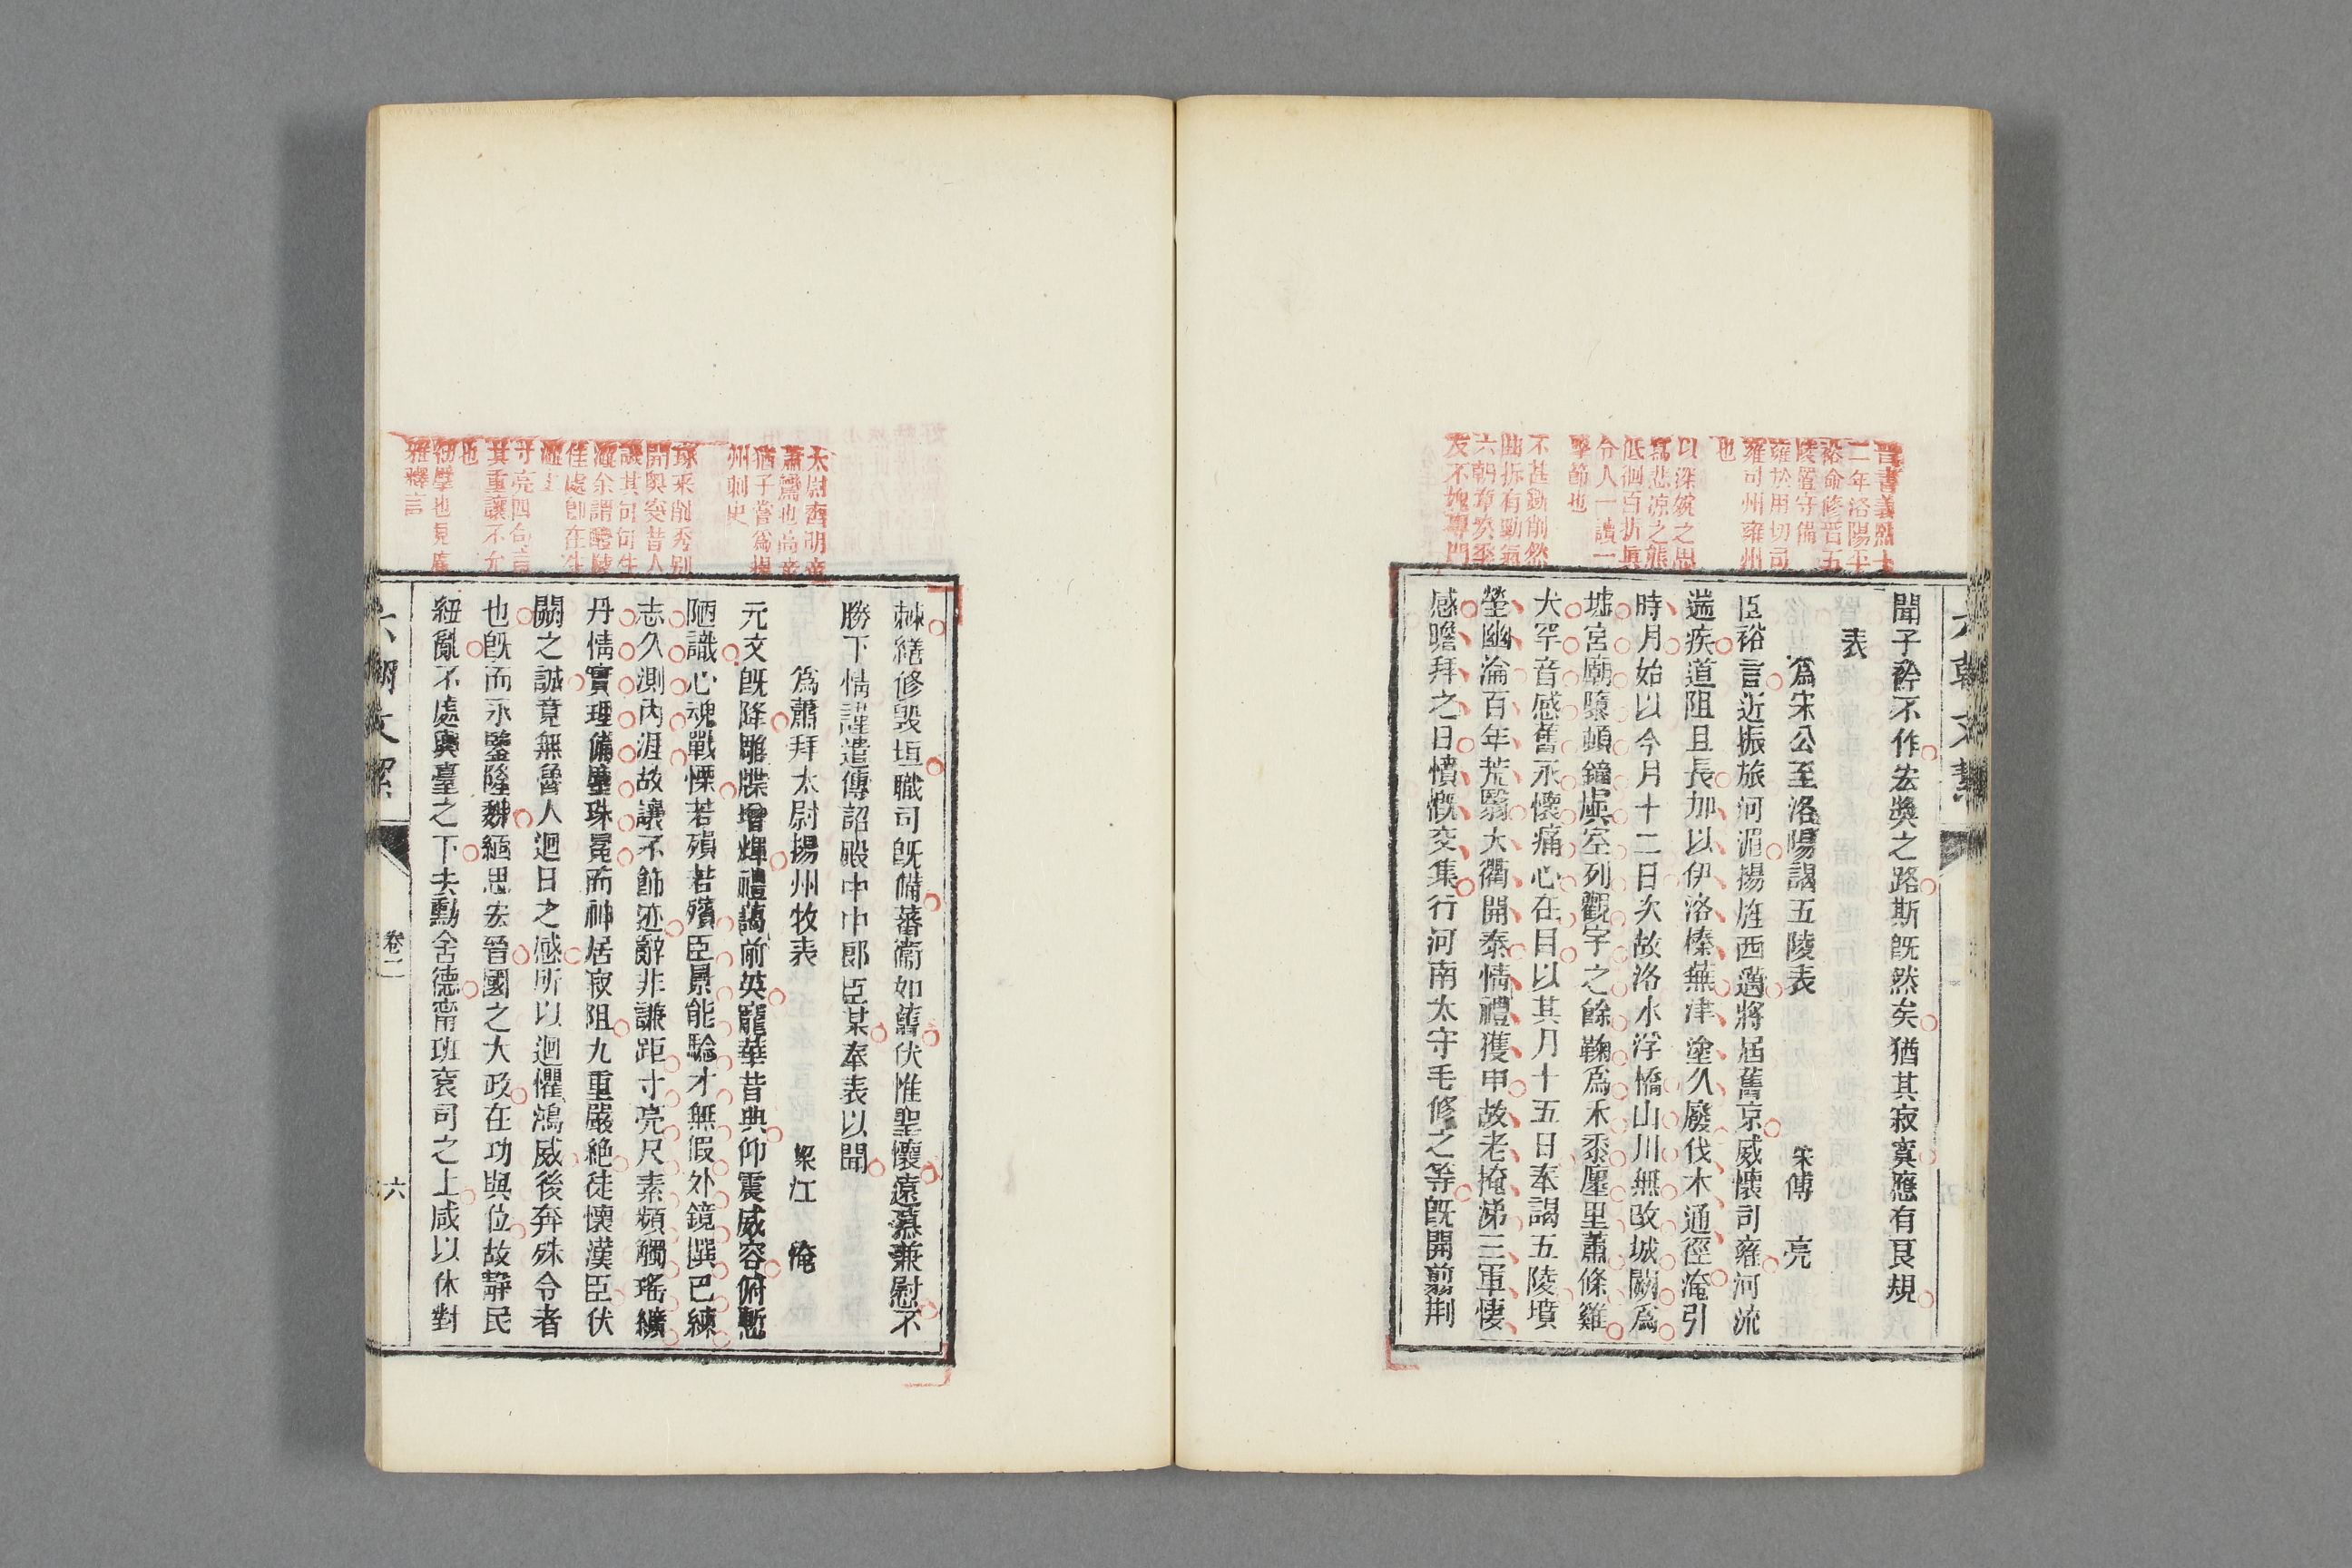 聞子矜不作宏獎之路斯既然矣猶其寂寞應有良規
表
爲宋公至洛陽謁五陵表 宋傅 亮
臣裕言近振旅河湄揚旌西邁將屆舊京威懷司雍河流
遄疾道阻且長加以伊洛榛蕪津塗久廢伐木通徑淹引
時月始以今月十二日次故洛水浮橋山川無改城闕爲
墟宮廟隳頓鐘虡空列觀宇之餘鞠爲禾黍廛里蕭條雞
犬罕音感舊永懷痛心在目以其月十五日奉謁五陵墳
塋幽淪百年荒翳大衢開泰情禮獲申故老掩涕三軍悽
感瞻拜之日憤慨交集行河南太守毛修之等既開翦荆
晉書義熙十
二年洛陽平
裕命修晉五
陵置守備
雍於用切司
雍司州雍州
也
以深婉之思
寫悲凉之態
低徊百折眞
令人一讀一
擊節也
不甚斲削然
曲折有勁氣
六朝章奏季
友不媿專門
棘繕修毀垣職司既備蕃衞如舊伏惟聖懷遠慕兼慰不
勝下情謹遣傳詔殿中中郎臣某奉表以聞
爲蕭拜太尉揚州牧表 梁江 俺
元文既降雕牒增輝禮藹前英寵華昔典仰震威容俯慙
陋識心魂戰慄若殞若殯臣景能驗才無假外鏡撰已練
志久測內涯故讓不飾迹辭非謙距寸亮尺素頻觸瑤纊
丹情實理備塵珠冕而神居寂阻九重嚴絶徒懷漢臣伏
闕之誠竟無魯人迴日之感所以迴懼鴻威後奔殊令者
也既而永鑒隆魏緬思宏晉國之大政在功與位故靜民
紐亂不處輿臺之下去勳舍德甯班袞司之上咸以休對
太尉齊明帝
蕭鸞也高帝
猶子嘗爲揚
州刺史
琢采削秀别
開奧窔昔人
謂其句句生
澀余謂醴陵
佳處卽在生
澀上
寸亮四句言
其重讓不允
也
礽擘也見廣
雅釋言
六朝文絜
卷二
六